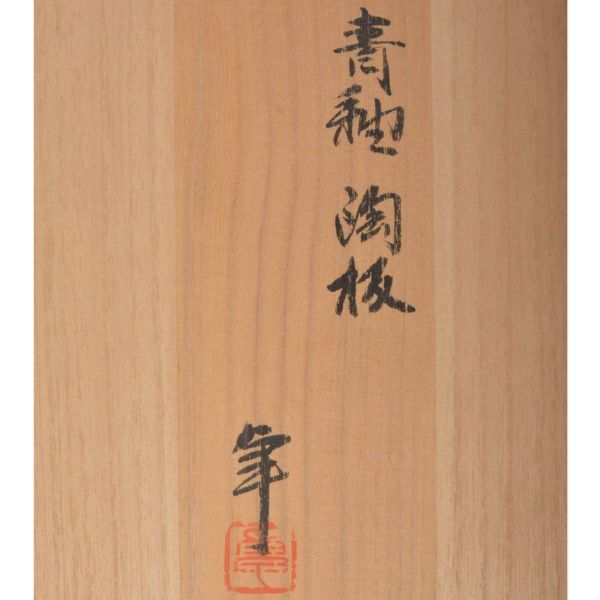 青釉 陶板
年